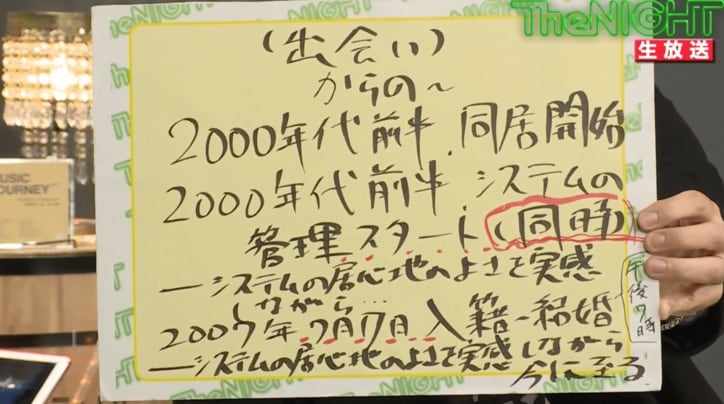 TheNIGHT
生放送
(出会い)
からの〜
2000年代前半.同居開始
2000年代前半.システムの
管理スタート.(同時)
―システムの居心地のよさを実感
しながら…
2007年7月17日入籍-結婚
午後7時
―システムの居心地のよさを実感しながら
今に至る
MUSIC
JOURNEY
TheNIGHT
TheNIGHT